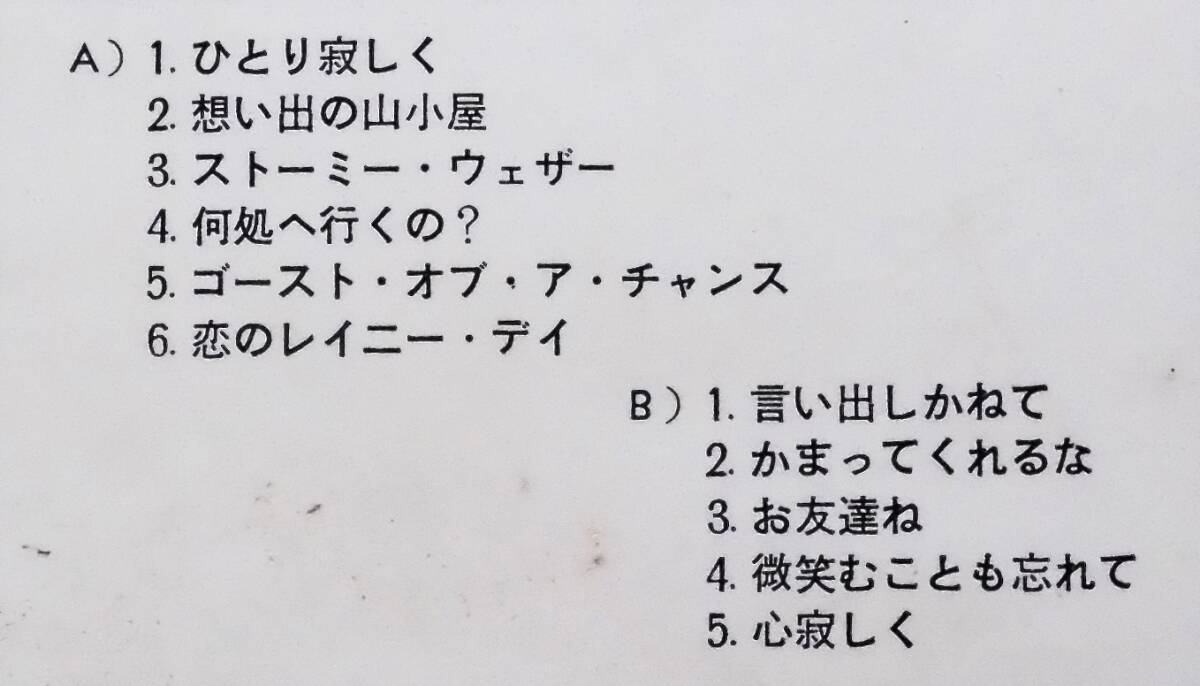 A) 1. ひとり寂しく
2. 想い出の山小屋
3. ストーミー・ウェザー
4. 何処へ行くの?
5. ゴースト・オブ・ア・チャンス
6. 恋のレイニー・デイ
B) 1. 言い出しかねて
2. かまってくれるな
3. お友達ね
4. 微笑むことも忘れて
5. 心寂しく